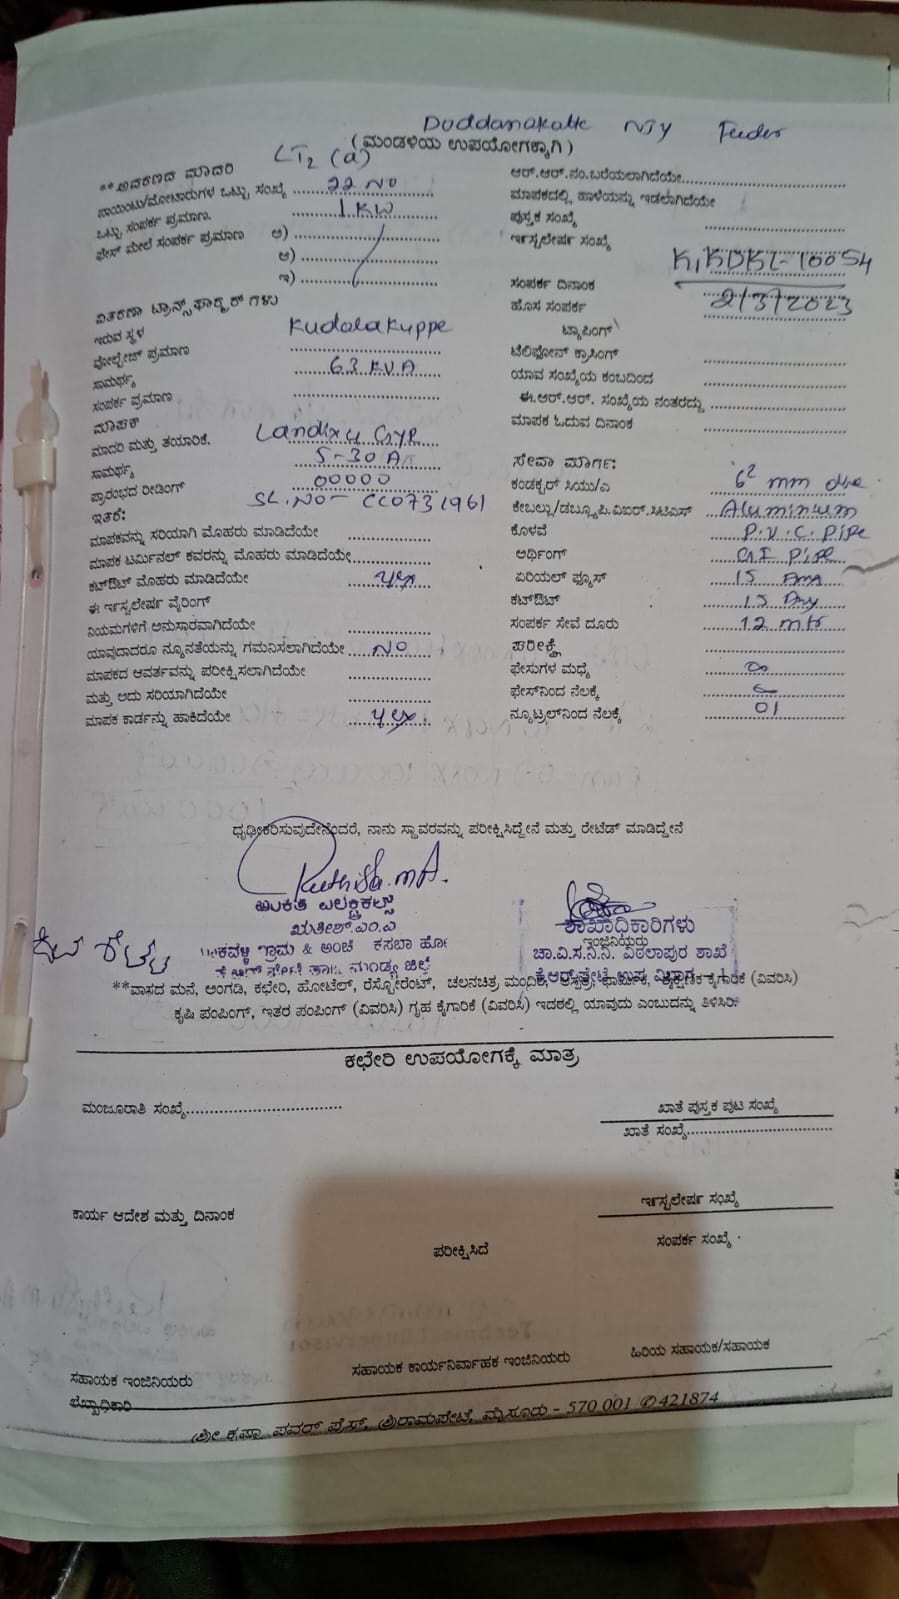 Doddanakatte NJY Feeder
(ಮಂಡಳಿಯ ಉಪಯೋಗಕ್ಕಾಗಿ)
**ಆವರಣದ ಮಾದರಿ LT2 (a)
ಪಾಯಿಂಟು/ಮೋಟಾರುಗಳ ಒಟ್ಟು ಸಂಖ್ಯೆ 22 No
ಒಟ್ಟು ಸಂಪರ್ಕ ಪ್ರಮಾಣ. 1 KW
ಫೇಸ್ ಮೇಲೆ ಸಂಪರ್ಕ ಪ್ರಮಾಣ ಅ)
ಆ)
ಇ)
ವಿತರಣಾ ಟ್ರಾನ್ಸ್‌ಫಾರ್ಮರ್ ಗಳು
ಇರುವ ಸ್ಥಳ Kudalakuppe
ವೋಲ್ಟೇಜ್ ಪ್ರಮಾಣ
ಸಾಮರ್ಥ್ಯ 63 KVA
ಸಂಪರ್ಕ ಪ್ರಮಾಣ
ಮಾಪಕ
ಮಾದರಿ ಮತ್ತು ತಯಾರಿಕೆ. Landix & GYR
ಸಾಮರ್ಥ್ಯ 5-30 A
ಪ್ರಾರಂಭದ ರೀಡಿಂಗ್ 00000
ಇತರೆ: SL.NO- CC0731961
ಮಾಪಕವನ್ನು ಸರಿಯಾಗಿ ಮೊಹರು ಮಾಡಿದೆಯೇ
ಮಾಪಕ ಟರ್ಮಿನಲ್ ಕವರನ್ನು ಮೊಹರು ಮಾಡಿದೆಯೇ
ಕಟ್‌ಔಟ್ ಮೊಹರು ಮಾಡಿದೆಯೇ yes
ಈ ಇನ್‌ಸ್ಟಲೇಷನ್ ವೈರಿಂಗ್
ನಿಯಮಗಳಿಗೆ ಅನುಸಾರವಾಗಿದೆಯೇ
ಯಾವುದಾದರೂ ನ್ಯೂನತೆಯನ್ನು ಗಮನಿಸಲಾಗಿದೆಯೇ NO
ಮಾಪಕದ ಆವರ್ತವನ್ನು ಪರೀಕ್ಷಿಸಲಾಗಿದೆಯೇ
ಮತ್ತು ಅದು ಸರಿಯಾಗಿದೆಯೇ
ಮಾಪಕ ಕಾರ್ಡನ್ನು ಹಾಕಿದೆಯೇ yes
ಆರ್.ಆರ್.ನಂ.ಬರೆಯಲಾಗಿದೆಯೇ
ಮಾಪಕದಲ್ಲಿ ಹಾಳೆಯನ್ನು ಇಡಲಾಗಿದೆಯೇ
ಪುಸ್ತಕ ಸಂಖ್ಯೆ
ಇನ್‌ಸ್ಟಲೇಷನ್ ಸಂಖ್ಯೆ KIKDKL-10054
ಸಂಪರ್ಕ ದಿನಾಂಕ 2/3/2023
ಹೊಸ ಸಂಪರ್ಕ
ಟ್ಯಾಪಿಂಗ್
ಟೆಲಿಫೋನ್ ಕ್ರಾಸಿಂಗ್
ಯಾವ ಸಂಖ್ಯೆಯ ಕಂಬದಿಂದ
ಈ.ಆರ್.ಆರ್. ಸಂಖ್ಯೆಯ ನಂತರದ್ದು
ಮಾಪಕ ಓದುವ ದಿನಾಂಕ
ಸೇವಾ ಮಾರ್ಗ:
ಕಂಡಕ್ಟರ್ ಸಿಯು/ಎ 6² mm
ಕೇಬಲ್ಲು/ಡಬ್ಲ್ಯೂ.ಪಿ.ಐಆರ್.ಸಿಟಿಎಸ್ Aluminium
ಕೊಳವೆ P.V.C. Pipe
ಅರ್ಥಿಂಗ್ GI Pipe
ಏರಿಯಲ್ ಫ್ಯೂಸ್ 15 Amp
ಕಟ್‌ಔಟ್ 15 Amp
ಸಂಪರ್ಕ ಸೇವೆ ದೂರು 12 mtr
ಪರೀಕ್ಷೆ
ಫೇಸುಗಳ ಮಧ್ಯೆ ∞
ಫೇಸ್‌ನಿಂದ ನೆಲಕ್ಕೆ ∞
ನ್ಯೂಟ್ರಲ್‌ನಿಂದ ನೆಲಕ್ಕೆ 01
ಧೃಢೀಕರಿಸುವುದೇನೆಂದರೆ, ನಾನು ಸ್ಥಾವರವನ್ನು ಪರೀಕ್ಷಿಸಿದ್ದೇನೆ ಮತ್ತು ರೇಟೆಡ್ ಮಾಡಿದ್ದೇನೆ
Ruthisha.M.A.
ಎಲಕ್ಟ್ರಿಕಲ್ಸ್
ಋತೀಶ್.ಎಂ.ಎ
ಗ್ರಾಮ & ಅಂಚೆ ಕಸಬಾ ಹೋ
ಮಂಡ್ಯ ಜಿಲ್ಲೆ
ಶಾಖಾಧಿಕಾರಿಗಳು
ಇಂಜಿನಿಯರು
ಚಾ.ವಿ.ಸ.ನಿ.ನಿ. ವಿಠಲಾಪುರ ಶಾಖೆ
ಕೆ.ಆರ್.ಪೇಟೆ ಉಪ ವಿಭಾಗ
**ವಾಸದ ಮನೆ, ಅಂಗಡಿ, ಕಛೇರಿ, ಹೋಟೆಲ್, ರೆಸ್ಟೋರೆಂಟ್, ಚಲನಚಿತ್ರ ಮಂದಿರ, ಆಸ್ಪತ್ರೆ, ಫಾರ್ಮಿಕ, ಶೈಕ್ಷಣಿಕ ಕೈಗಾರಿಕೆ (ವಿವರಿಸಿ)
ಕೃಷಿ ಪಂಪಿಂಗ್, ಇತರ ಪಂಪಿಂಗ್ (ವಿವರಿಸಿ) ಗೃಹ ಕೈಗಾರಿಕೆ (ವಿವರಿಸಿ) ಇದರಲ್ಲಿ ಯಾವುದು ಎಂಬುದನ್ನು ತಿಳಿಸಿರಿ.
ಕಛೇರಿ ಉಪಯೋಗಕ್ಕೆ ಮಾತ್ರ
ಮಂಜೂರಾತಿ ಸಂಖ್ಯೆ
ಖಾತೆ ಪುಸ್ತಕ ಪುಟ ಸಂಖ್ಯೆ
ಖಾತೆ ಸಂಖ್ಯೆ
ಕಾರ್ಯ ಆದೇಶ ಮತ್ತು ದಿನಾಂಕ
ಇನ್‌ಸ್ಟಲೇಷನ್ ಸಂಖ್ಯೆ
ಪರೀಕ್ಷಿಸಿದೆ
ಸಂಪರ್ಕ ಸಂಖ್ಯೆ
ಸಹಾಯಕ ಇಂಜಿನಿಯರು
ಸಹಾಯಕ ಕಾರ್ಯನಿರ್ವಾಹಕ ಇಂಜಿನಿಯರು
ಹಿರಿಯ ಸಹಾಯಕ/ಸಹಾಯಕ
ಲೆಖ್ಖಾಧಿಕಾರಿ
ಶ್ರೀ ಕೃಷ್ಣಾ ಪವರ್ ಪ್ರೆಸ್, ಶ್ರೀರಾಮಪೇಟೆ, ಮೈಸೂರು - 570 001 ✆ 421874